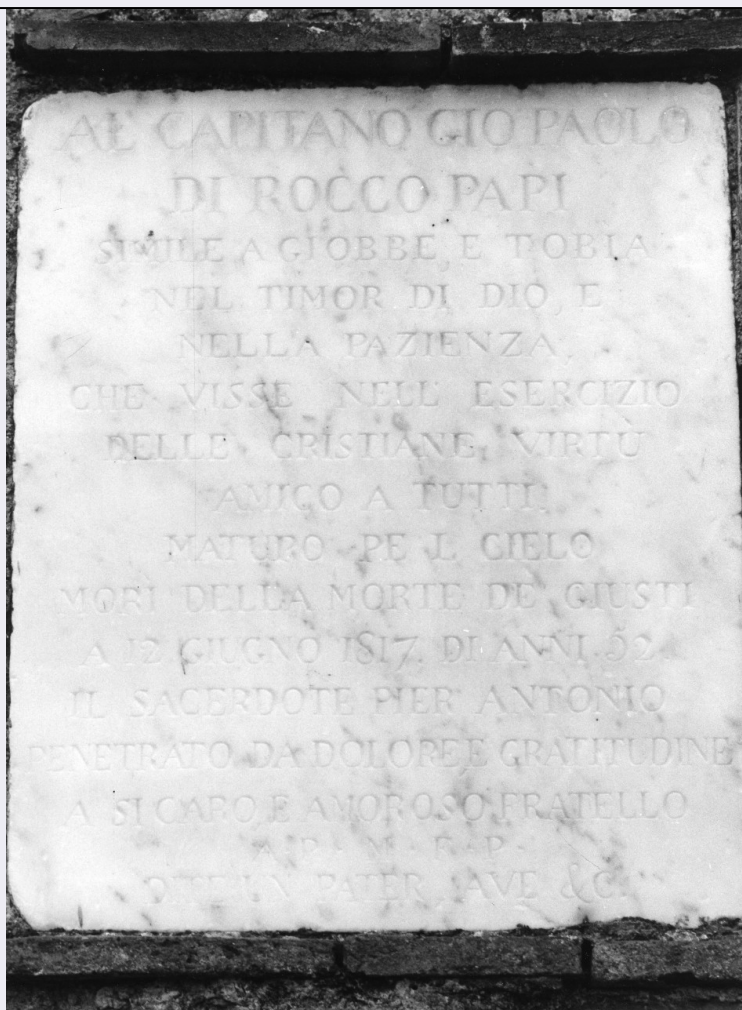 AL CAPITANO GIO PAOLO
DI ROCCO PAPI
SIMILE A GIOBBE, E TOBIA
NEL TIMOR DI DIO, E
NELLA PAZIENZA,
CHE VISSE NELL' ESERCIZIO
DELLE CRISTIANE VIRTÙ
AMICO A TUTTI
MATURO PE L CIELO
MORI DELLA MORTE DE' GIUSTI
A 12 GIUGNO 1817. DI ANNI 52
IL SACERDOTE PIER ANTONIO
PENETRATO DA DOLORE E GRATITUDINE
A SI CARO, E AMOROSO FRATELLO
PATER, AVE &C.